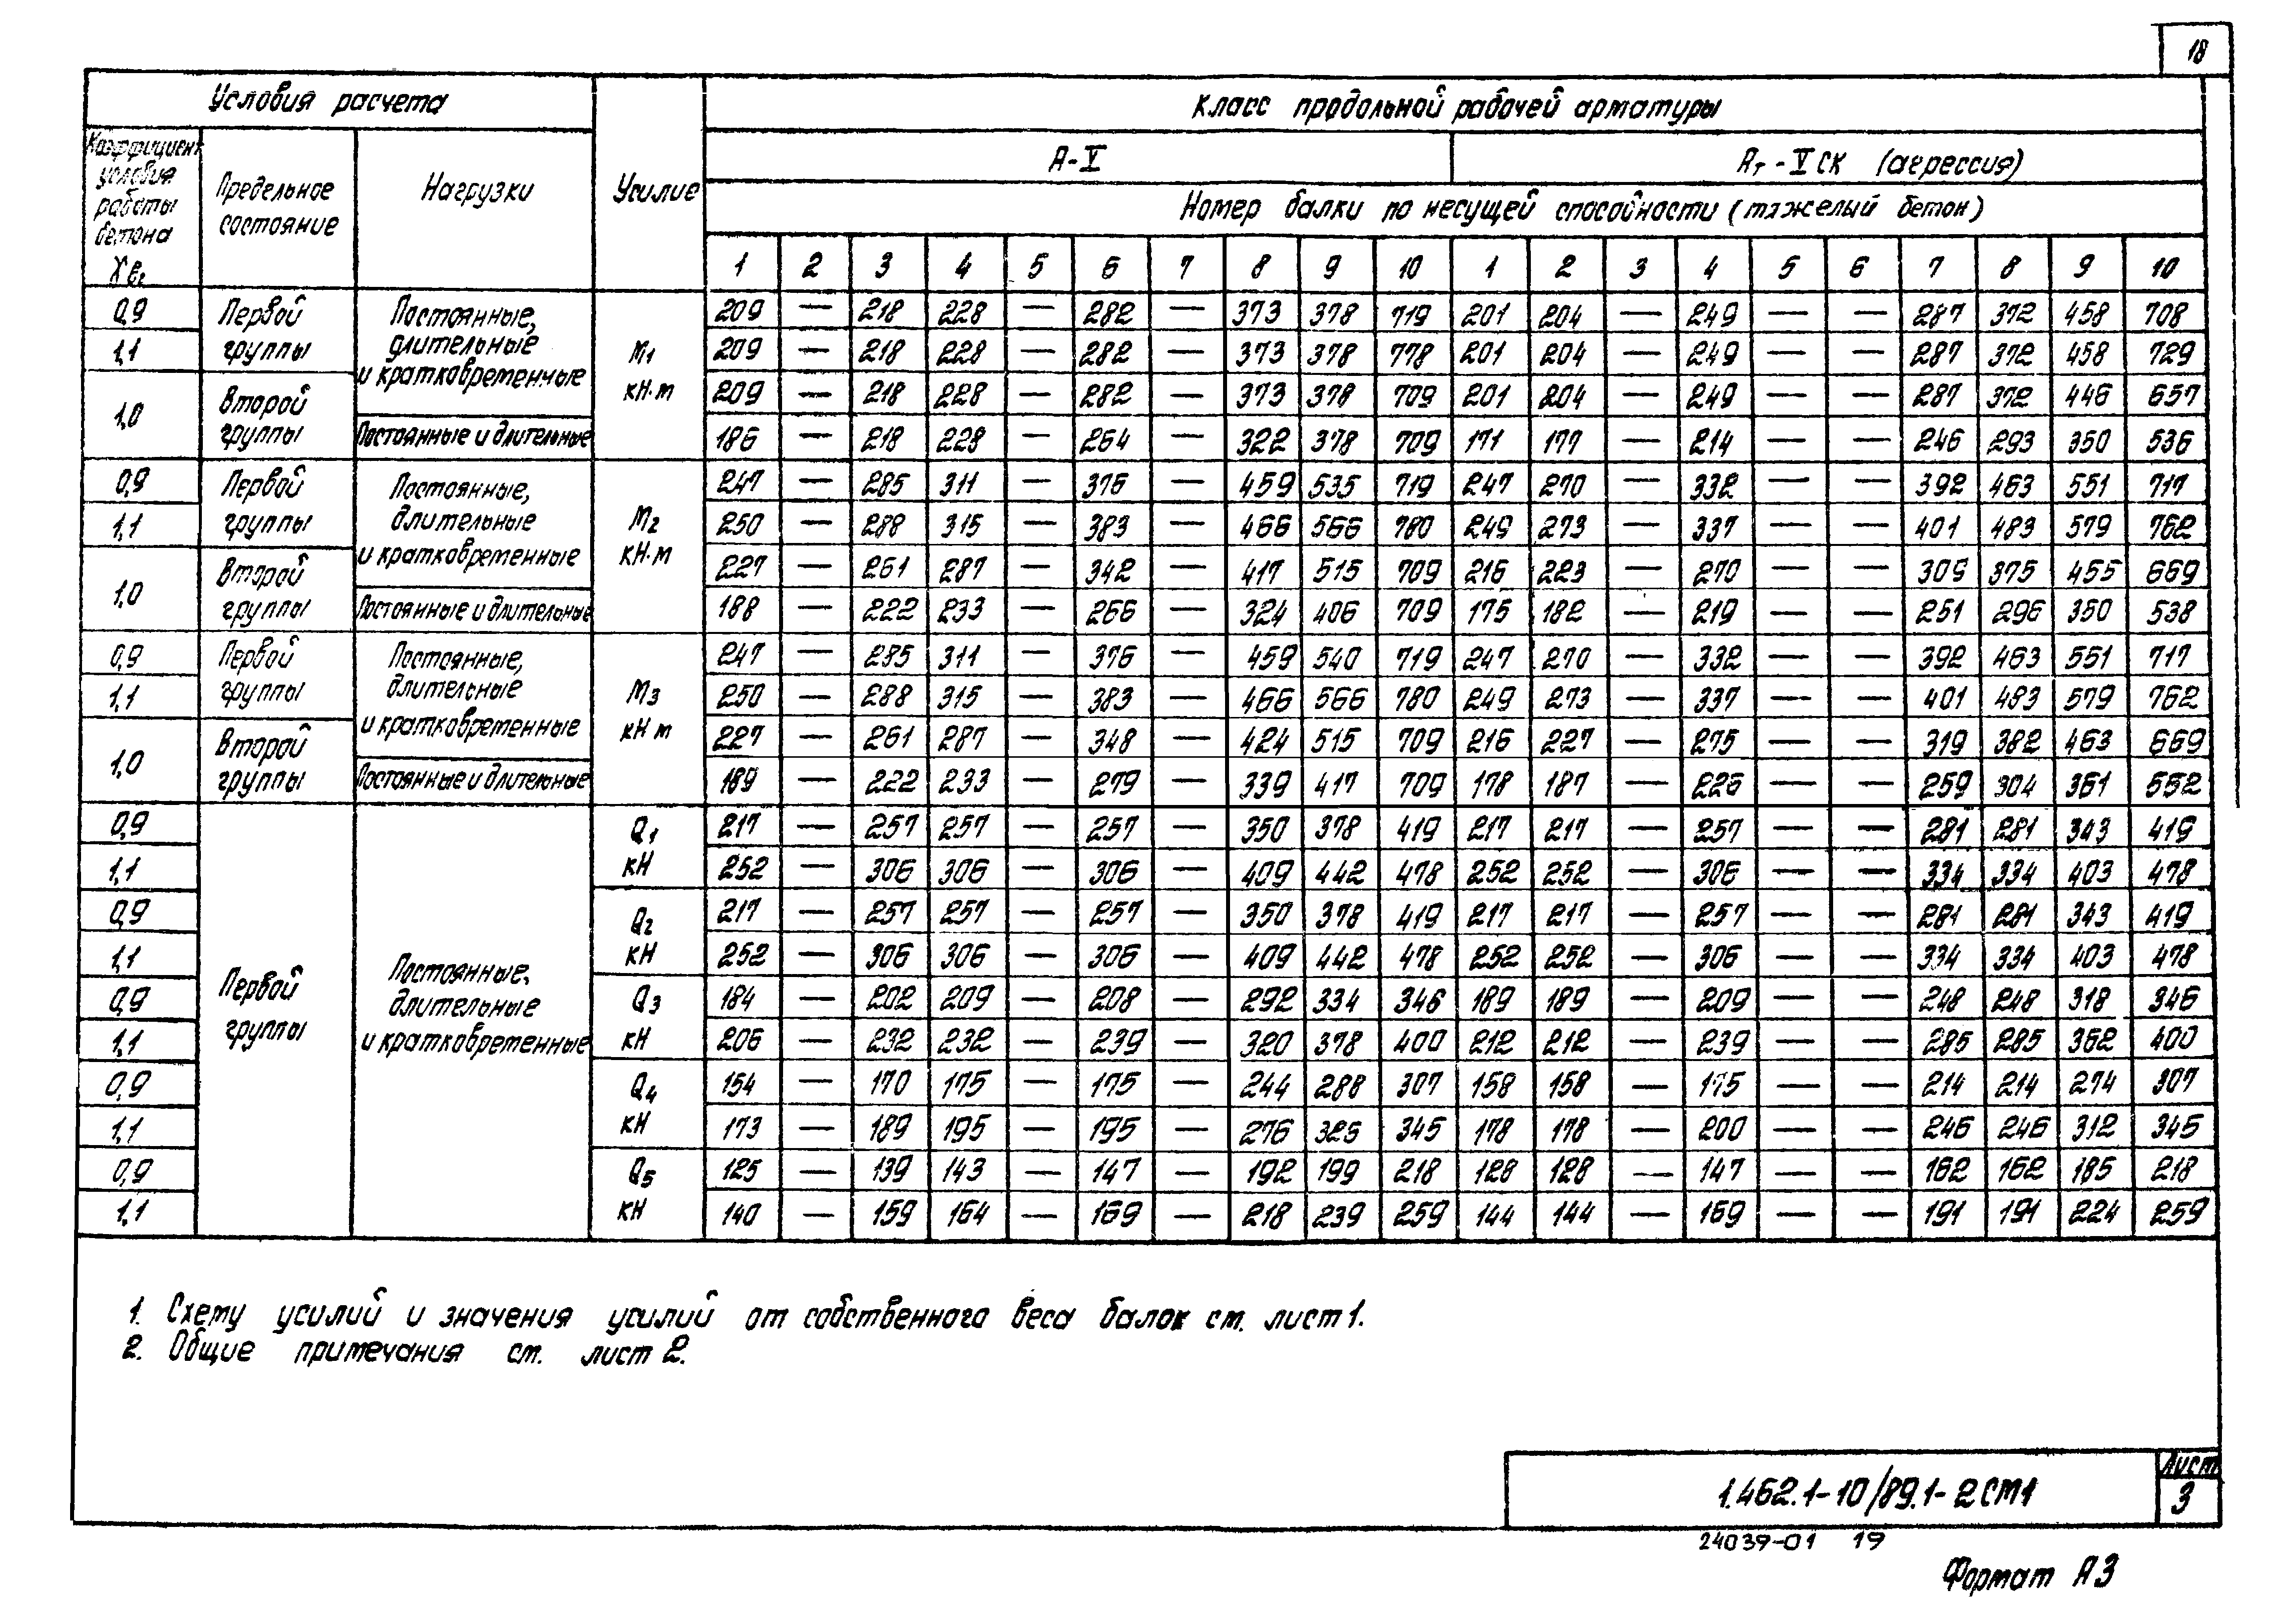 18
Условия расчета
Усилие
Класс продольной рабочей арматуры
Коэффициент условия работы бетона γб₂
Предельное состояние
Нагрузки
А-V
Ат-VСК (агрессия)
Номер балки по несущей способности (тяжелый бетон)
1 2 3 4 5 6 7 8 9 10 1 2 3 4 5 6 7 8 9 10
0,9 Первой группы Постоянные, длительные и кратковременные М1 кН·м 209 — 218 228 — 282 — 373 378 719 201 204 — 249 — — 287 372 458 708
1,1 209 — 218 228 — 282 — 373 378 778 201 204 — 249 — — 287 372 458 729
1,0 Второй группы 209 — 218 228 — 282 — 373 378 709 201 204 — 249 — — 287 372 446 657
Постоянные и длительные 186 — 218 228 — 264 — 322 378 709 171 177 — 214 — — 246 293 350 536
0,9 Первой группы Постоянные, длительные и кратковременные М2 кН·м 247 — 285 311 — 376 — 459 535 719 247 270 — 332 — — 392 463 551 717
1,1 250 — 288 315 — 383 — 466 566 780 249 273 — 337 — — 401 483 579 762
1,0 Второй группы 227 — 261 287 — 342 — 417 515 709 216 223 — 270 — — 309 375 455 669
Постоянные и длительные 188 — 222 233 — 266 — 324 406 709 175 182 — 219 — — 251 296 350 538
0,9 Первой группы Постоянные, длительные и кратковременные М3 кН·м 247 — 285 311 — 376 — 459 540 719 247 270 — 332 — — 392 463 551 717
1,1 250 — 288 315 — 383 — 466 566 780 249 273 — 337 — — 401 483 579 762
1,0 Второй группы 227 — 261 287 — 348 — 424 515 709 216 227 — 275 — — 319 382 463 669
Постоянные и длительные 189 — 222 233 — 279 — 339 417 709 178 187 — 226 — — 259 304 361 552
0,9 Первой группы Постоянные, длительные и кратковременные Q1 кН 217 — 257 257 — 257 — 350 378 419 217 217 — 257 — — 281 281 343 419
1,1 252 — 306 306 — 306 — 409 442 478 252 252 — 306 — — 334 334 403 478
0,9 Q2 кН 217 — 257 257 — 257 — 350 378 419 217 217 — 257 — — 281 281 343 419
1,1 252 — 306 306 — 306 — 409 442 478 252 252 — 306 — — 334 334 403 478
0,9 Q3 кН 184 — 202 209 — 208 — 292 334 346 189 189 — 209 — — 248 248 318 346
1,1 206 — 232 232 — 239 — 320 378 400 212 212 — 239 — — 285 285 362 400
0,9 Q4 кН 154 — 170 175 — 175 — 244 288 307 158 158 — 175 — — 214 214 274 307
1,1 173 — 189 195 — 195 — 276 325 345 178 178 — 200 — — 246 246 312 345
0,9 Q5 кН 125 — 139 143 — 147 — 192 199 218 128 128 — 147 — — 162 162 185 218
1,1 140 — 159 164 — 169 — 218 239 259 144 144 — 169 — — 191 191 224 259
1. Схему усилий и значения усилий от собственного веса балок см. лист 1.
2. Общие примечания см. лист 2.
1.462.1-10/89.1-2СМ1
Лист
3
24039-01 19
Формат А3